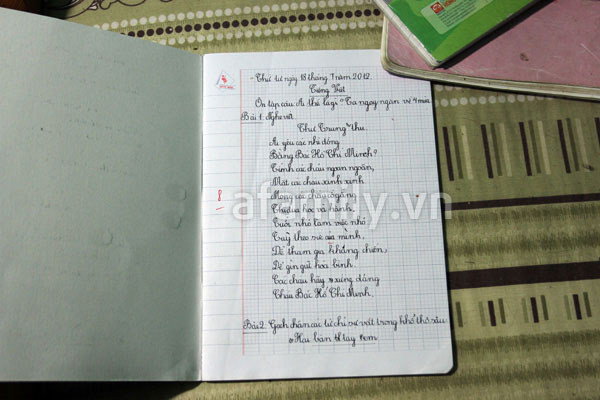 Thứ tư ngày 18 tháng 7 năm 2012.
Tiếng Việt
Ôn tập câu Ai thế là gì "Ta ngay ngắn về 4 mùa
Bài 1. Nghe viết.
Thư Trung thu.
Ai yêu các nhi đồng
Bằng Bác Hồ Chí Minh?
Tính các cháu ngoan ngoãn,
Mặt các cháu xinh xinh
Mong các cháu cố gắng
Thi đua học và hành.
Tuổi nhỏ làm việc nhỏ
Tuỳ theo sức của mình,
Để tham gia kháng chiến,
Để gìn giữ hoà bình.
Các cháu hãy xứng đáng
Cháu Bác Hồ Chí Minh.
Bài 2. Gạch chân các từ chỉ sự vật trong khổ thơ sau
Hai bàn tay em
8
afamily.vn